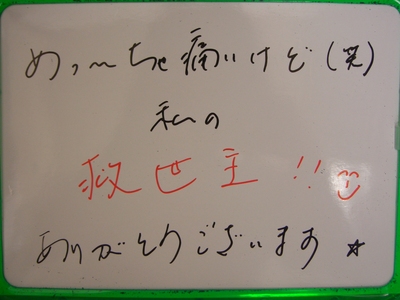 めっ〜ちゃ痛いけど(笑)
私の
救世主!!
ありがとうございます☆